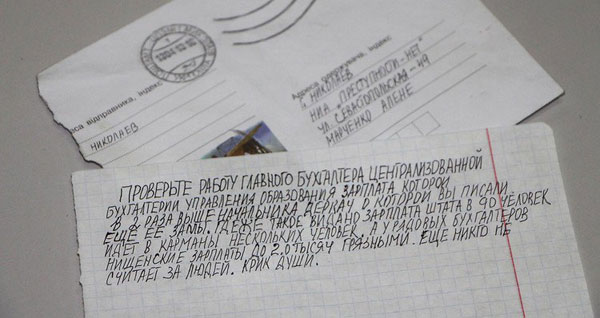 реса відправника, індекс
НИКОЛАЕВ
Адреса одержувача, індекс
Г. НИКОЛАЕВ
НИА "ПРЕСТУПНОСТИ-НЕТ"
УЛ. СЕВАСТОПОЛЬСКАЯ-49
МАРЧЕНКО АЛЕНЕ
ПРОВЕРЬТЕ РАБОТУ ГЛАВНОГО БУХГАЛТЕРА ЦЕНТРАЛИЗОВАННОЙ
БУХГАЛТЕРИИ УПРАВЛЕНИЯ ОБРАЗОВАНИЯ ЗАРПЛАТА КОТОРОЙ
В 2 РАЗА ВЫШЕ НАЧАЛЬНИКА ДЕРКАЧ О КОТОРОЙ ВЫ ПИСАЛИ
ЕЩЕ ЕЕ ЗАМЫ. ГДЕ ТАКОЕ ВИДАНО ЗАРПЛАТА ШТАТА В 90 ЧЕЛОВЕК
ИДЕТ В КАРМАНЫ НЕСКОЛЬКИХ ЧЕЛОВЕК, А У РЯДОВЫХ БУХГАЛТЕРОВ
НИЩЕНСКИЕ ЗАРПЛАТЫ ДО 2.0 ТЫСЯЧ ГРЯЗНЫМИ. ЕЩЕ НИКТО НЕ
СЧИТАЕТ ЗА ЛЮДЕЙ. КРИК ДУШИ.